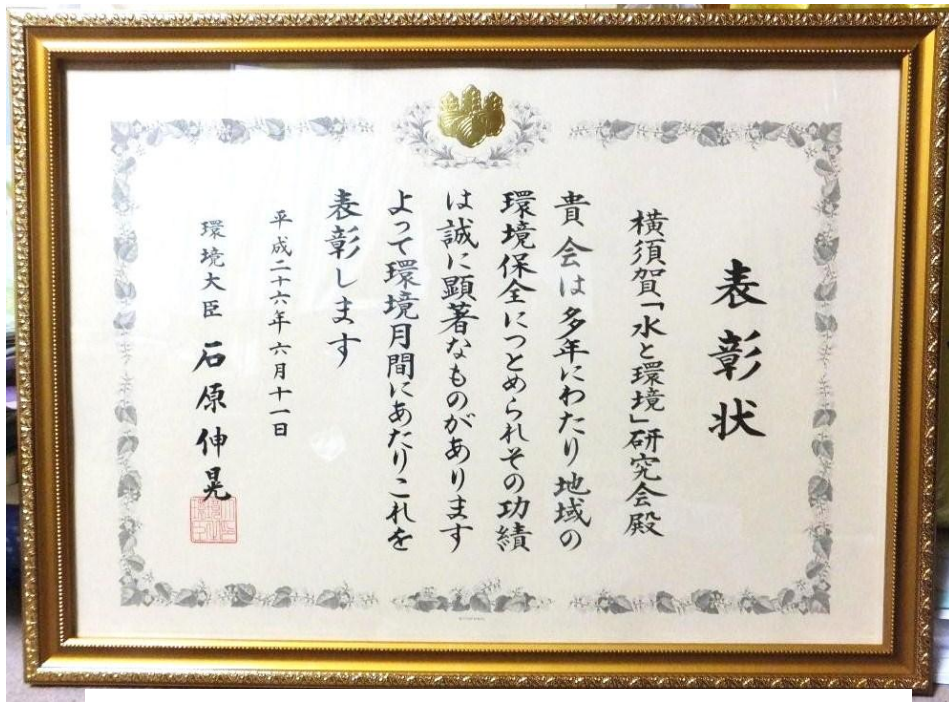 表彰状
横須賀「水と環境」研究会殿
貴会は多年にわたり地域の
環境保全につとめられその功績
は誠に顕著なものがあります
よって環境月間にあたりこれを
表彰します
平成二十六年六月十一日
環境大臣 石原伸晃